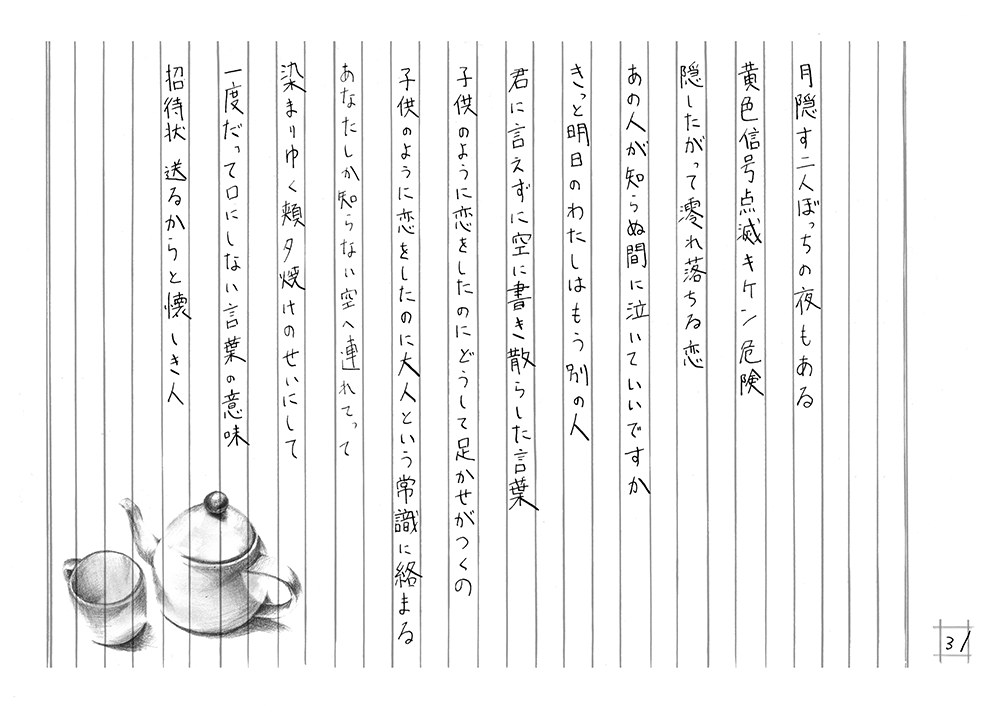 月隠す二人ぼっちの夜もある
黄色信号点滅キケン危険
隠したがって零れ落ちる恋
あの人が知らぬ間に泣いていいですか
きっと明日のわたしはもう別の人
君に言えずに空に書き散らした言葉
子供のように恋をしたのにどうして足かせがつくの
子供のように恋をしたのに大人という常識に絡まる
あなたしか知らない空へ連れてって
染まりゆく頬夕焼けのせいにして
一度だって口にしない言葉の意味
招待状 送るからと懐しき人
31